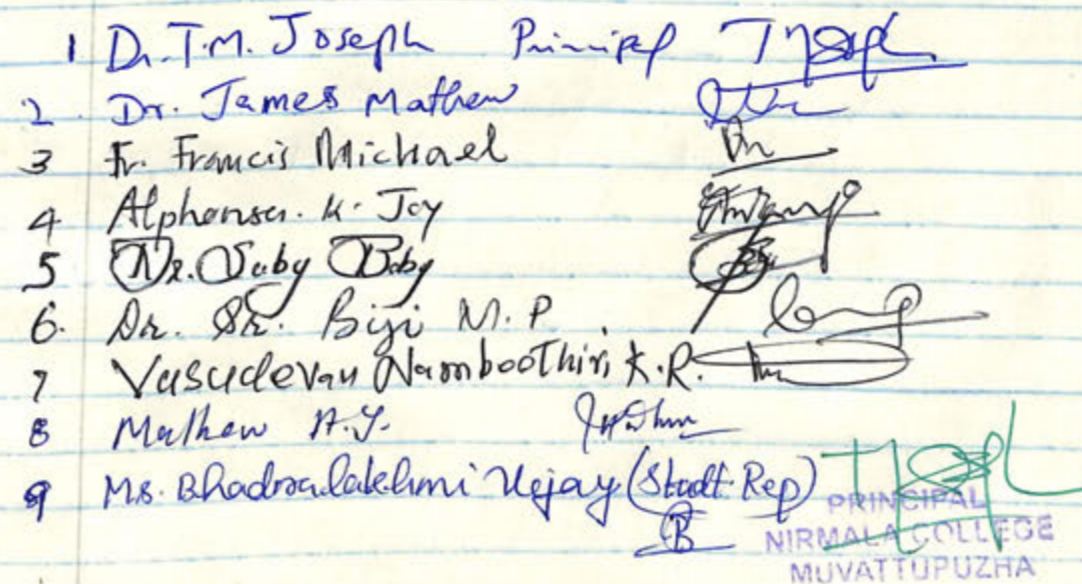 1 Dr. T.M. Joseph Principal
2. Dr. James Mathew
3 Fr. Francis Michael
4 Alphonsa. K. Joy
5 Dr. Saby Baby
6. Dr. Sr. Biji M.P.
7 Vasudevan Namboothiri K.R.
8 Mathew A.J.
9 Ms. Bhadralakshmi Vijay (Stadt Rep)
B
PRINCIPAL
NIRMALA COLLEGE
MUVATTUPUZHA